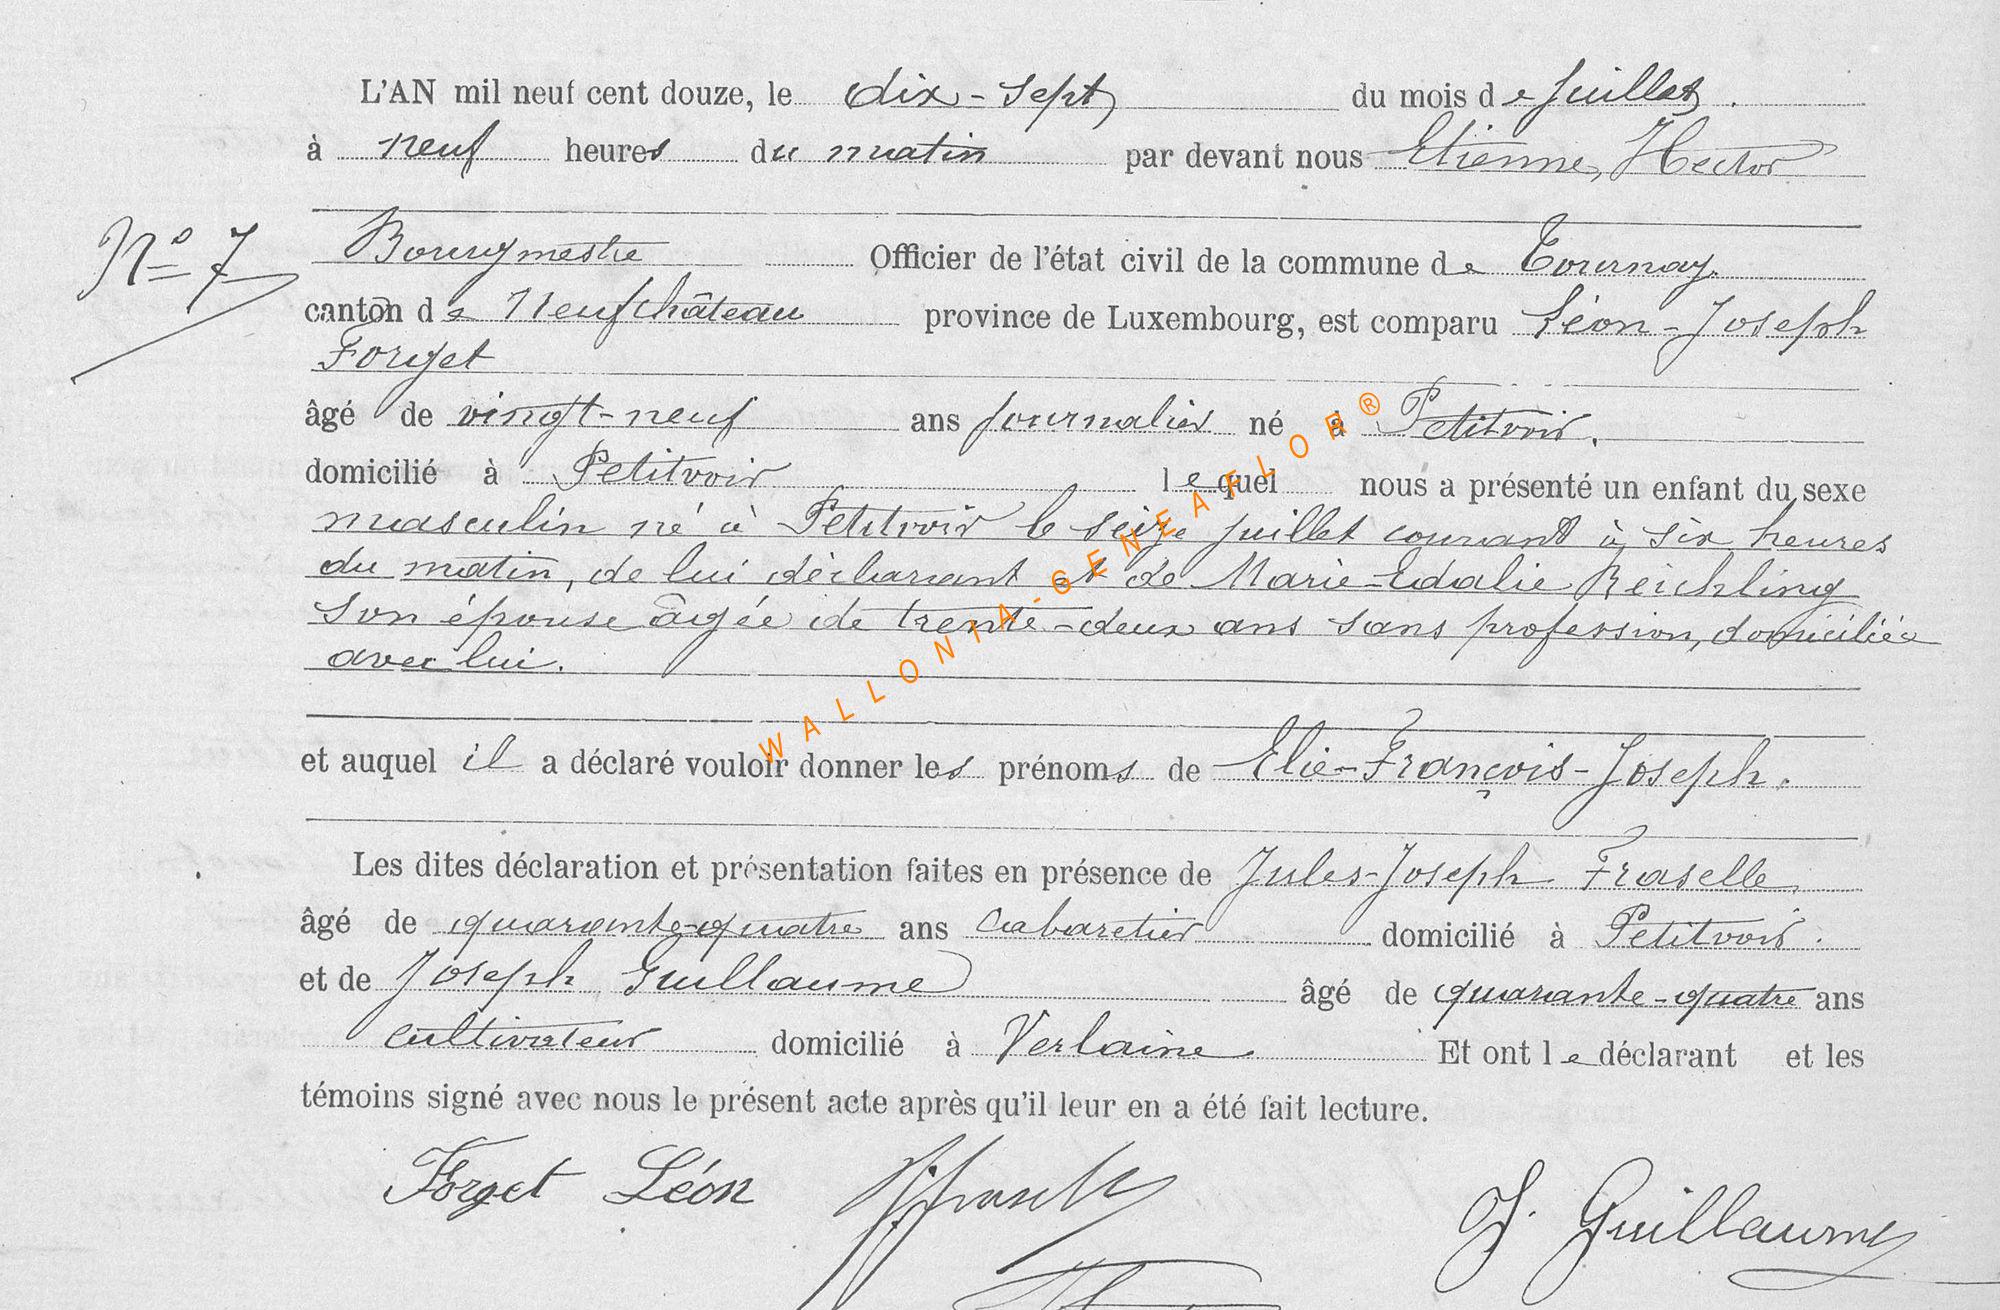 L'AN mil neuf cent douze, le dix-sept du mois de Juillet.
à neuf heures du matin par devant nous Etienne, Hector
N° 7
Bourgmestre Officier de l'état civil de la commune de Tournay.
canton de Neufchâteau province de Luxembourg, est comparu Léon-Joseph
Forget
âgé de vingt-neuf ans journalier né à Petitvoir.
domicilié à Petitvoir lequel nous a présenté un enfant du sexe
masculin né à Petitvoir le seize juillet courant à six heures
du matin, de lui déclarant et de Marie-Edalie Reichling
son épouse âgée de trente-deux ans sans profession, domiciliée
avec lui.
et auquel il a déclaré vouloir donner les prénoms de Elie-François-Joseph.
Les dites déclaration et présentation faites en présence de Jules-Joseph Fraselle
âgé de quarante-quatre ans cabaretier domicilié à Petitvoir.
et de Joseph Guillaume âgé de quarante-quatre ans
cultivateur domicilié à Verlaine Et ont le déclarant et les
témoins signé avec nous le présent acte après qu'il leur en a été fait lecture.
Forget Léon
J. Guillaume
WALLONIA-GENEAFLOR®